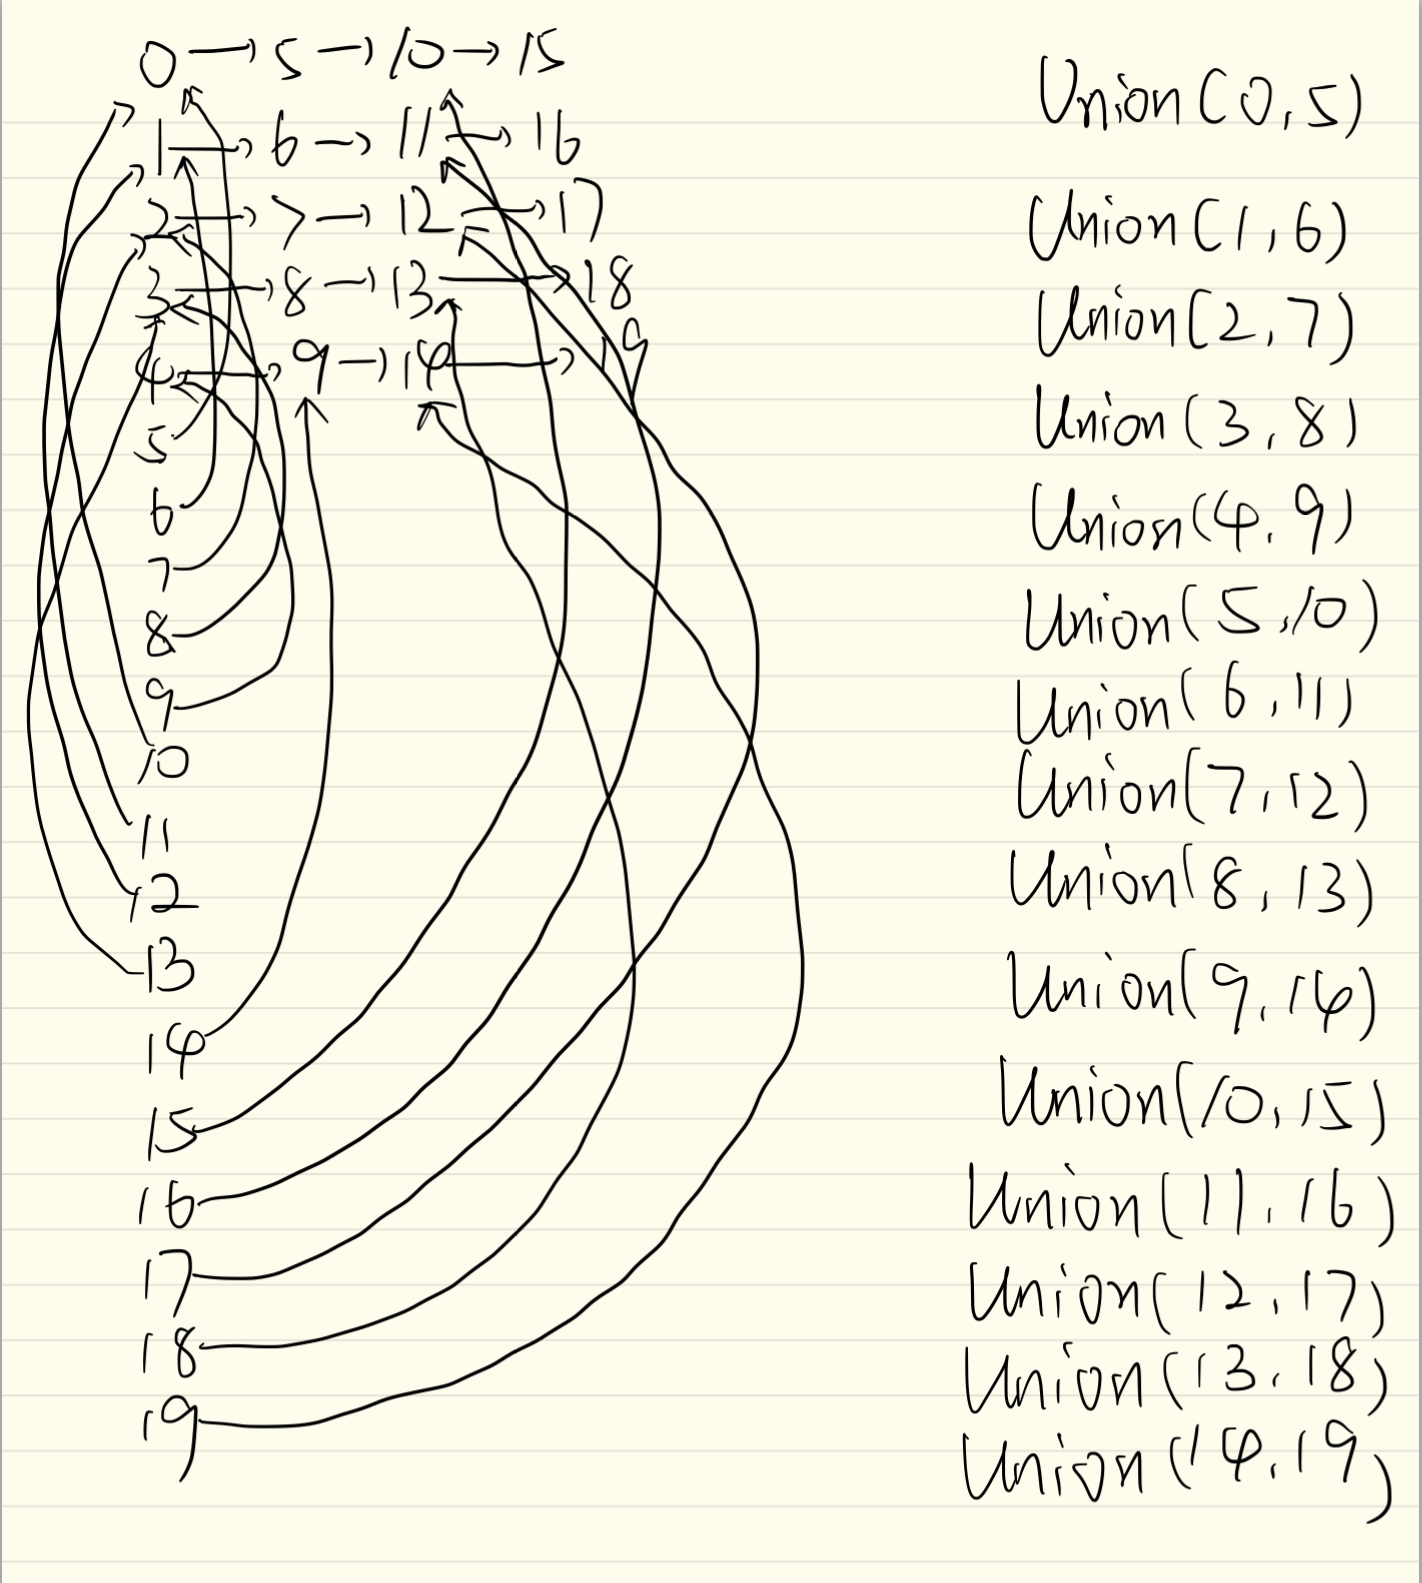 0 → 5 → 10 → 15
1 → 6 → 11 → 16
2 → 7 → 12 → 17
3 → 8 → 13 → 18
4 → 9 → 14 → 19
5
6
7
8
9
10
11
12
13
14
15
16
17
18
19
Union(0,5)
Union(1,6)
Union(2,7)
Union(3,8)
Union(4,9)
Union(5,10)
Union(6,11)
Union(7,12)
Union(8,13)
Union(9,14)
Union(10,15)
Union(11,16)
Union(12,17)
Union(13,18)
Union(14,19)